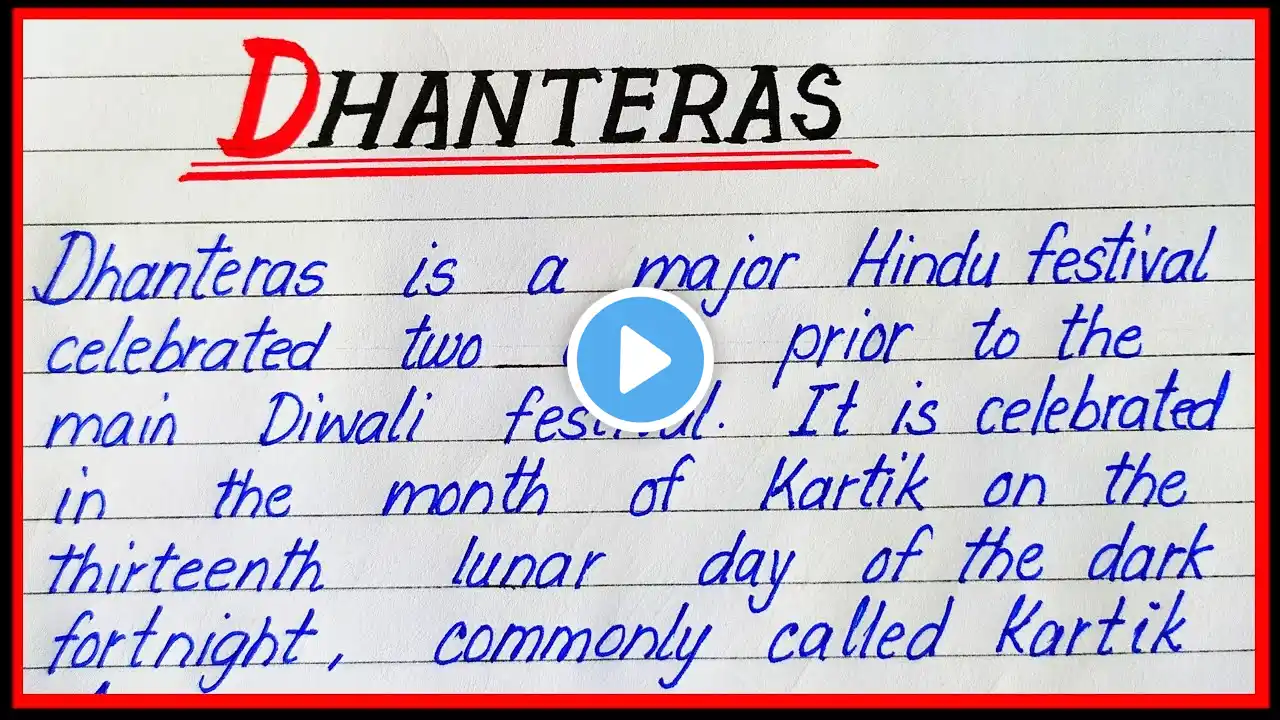 DHANTERAS
Dhanteras is a major Hindu festival
celebrated two prior to the
main Diwali festival. It is celebrated
in the month of Kartik on the
thirteenth lunar day of the dark
fortnight, commonly called Kartik